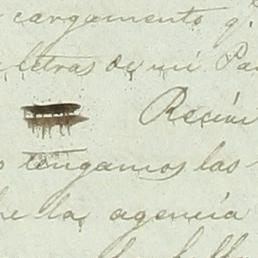 cargamento q.
letras de mi Pa
Recivi
tengamos las
he la agencia